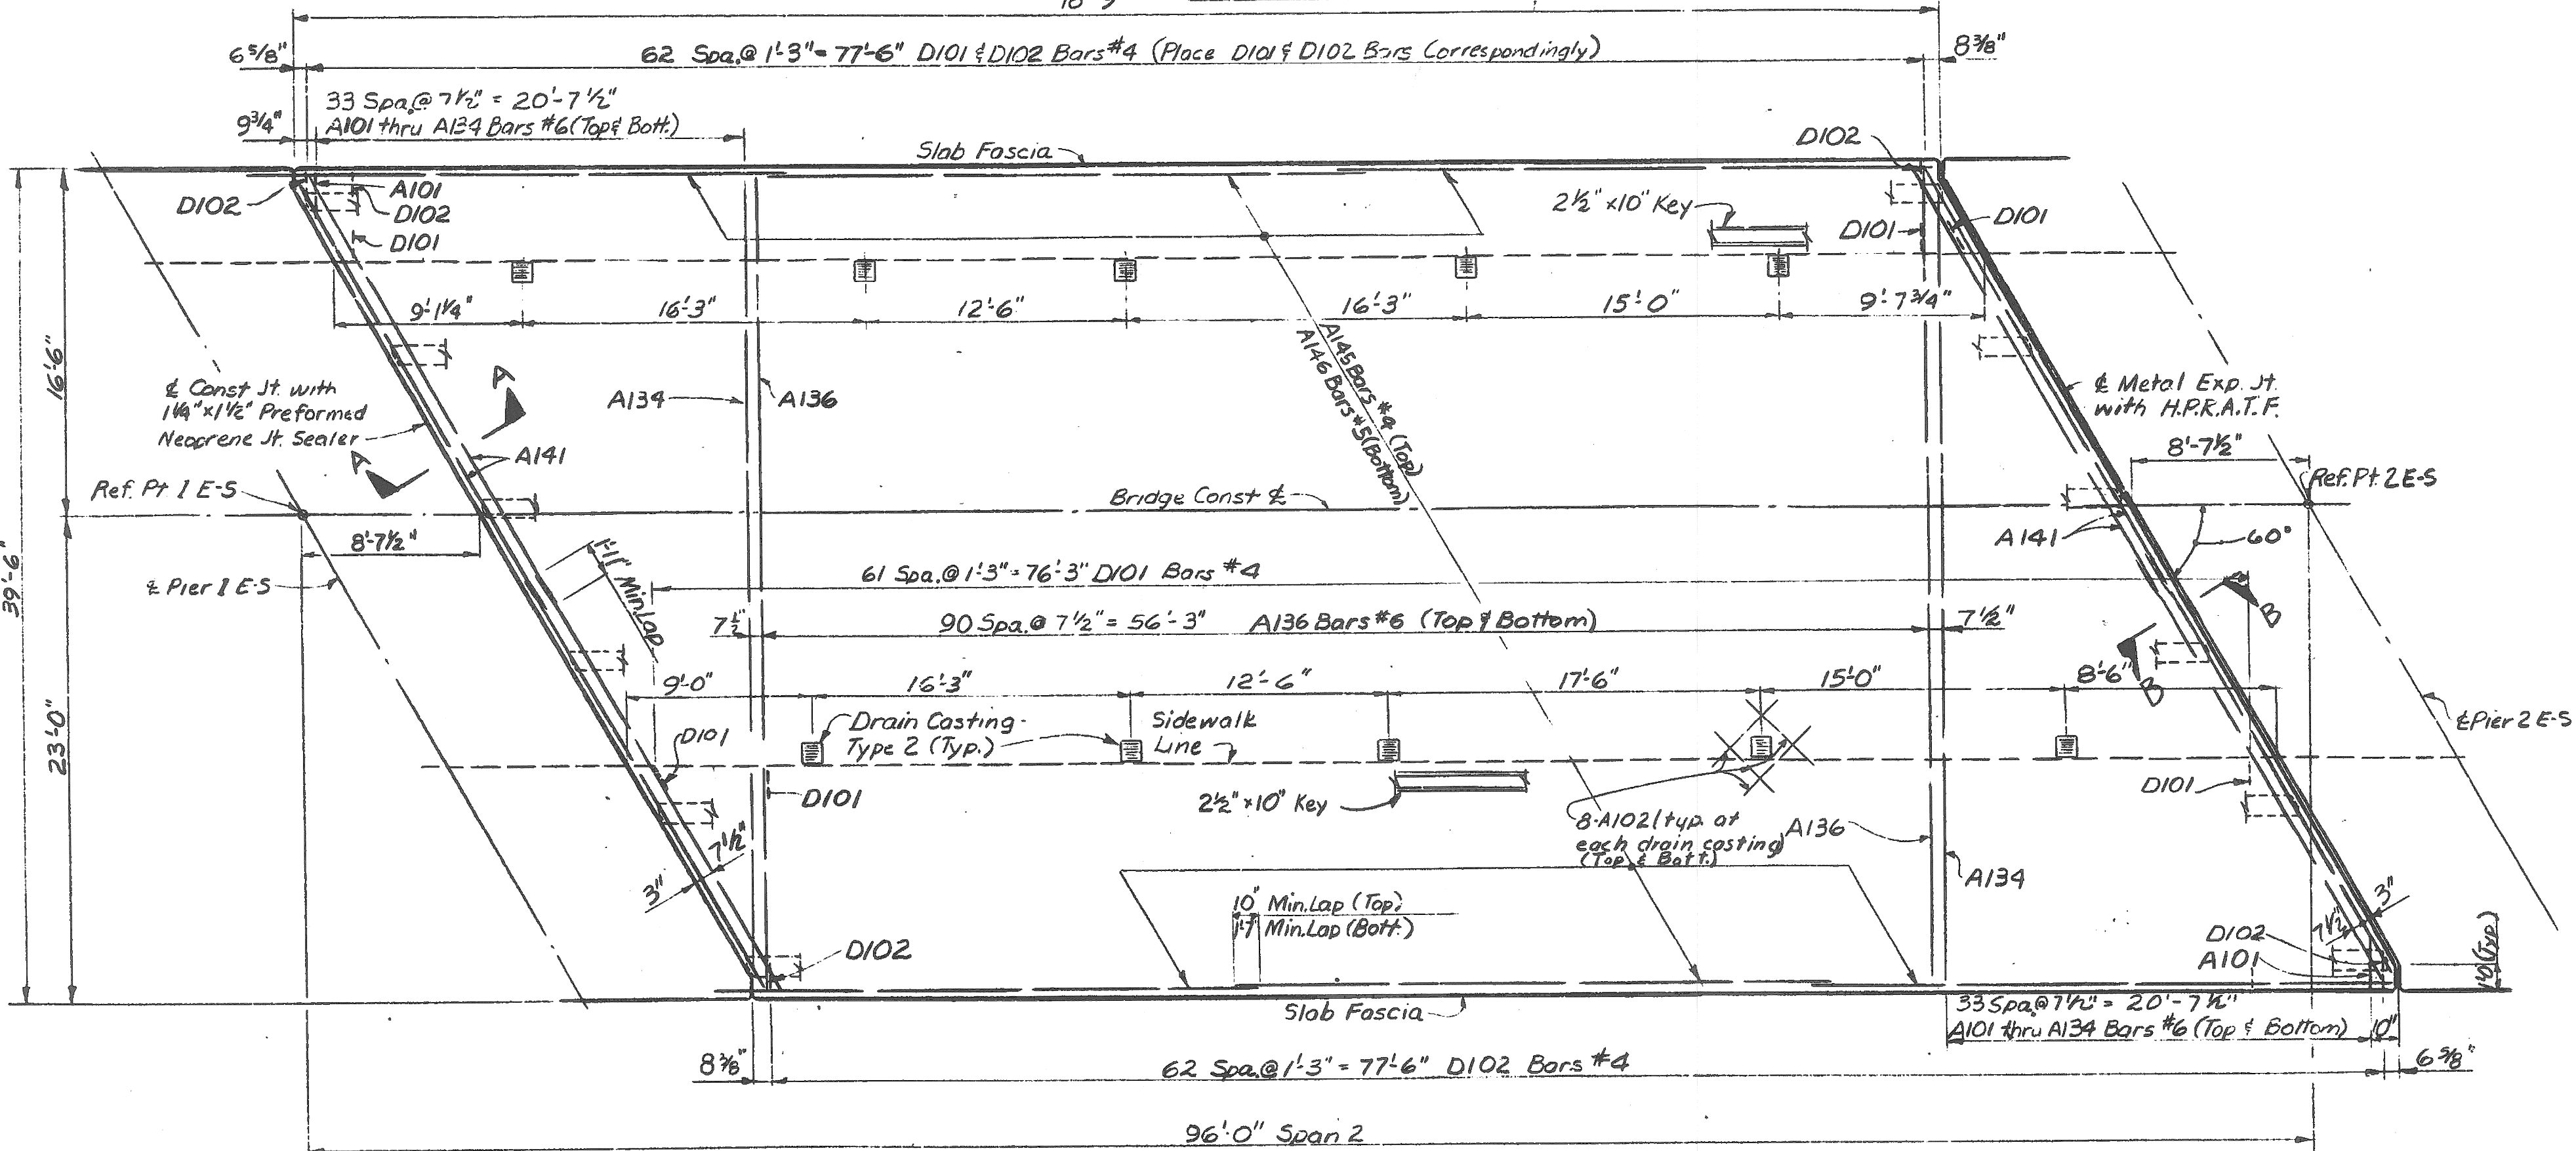 62 Spa.@ 1'-3" = 77'-6" D101 & D102 Bars #4 (Place D101 & D102 Bars Correspondingly)
6 5/8"
8 3/8"
33 Spa.@ 7 1/2" = 20'-7 1/2"
A101 thru A134 Bars #6 (Top & Bott.)
9 3/4"
Slab Fascia
D102
D102
A101
D102
D101
2 1/2" x 10" Key
D101
D101
9'-1 1/4"
16'-3"
12'-6"
16'-3"
15'-0"
9'-7 3/4"
16'-6"
23'-0"
39'-6"
℄ Const Jt. with
1 1/4" x 1 1/2" Preformed
Neoprene Jt. Sealer
A
A
A141
A134
A136
A145 Bars #4 (Top)
A146 Bars #5 (Bottom)
℄ Metal Exp. Jt.
with H.P.R.A.T.F.
8'-7 1/2"
Ref. Pt 1 E-S
Bridge Const ℄
Ref. Pt. 2 E-S
8'-7 1/2"
A141
60°
℄ Pier 1 E-S
1'-11" Min. Lap
61 Spa.@ 1'-3" = 76'-3" D101 Bars #4
7 1/2"
90 Spa.@ 7 1/2" = 56'-3" A136 Bars #6 (Top & Bottom)
7 1/2"
B
B
9'-0"
16'-3"
12'-6"
17'-6"
15'-0"
8'-6"
Drain Casting-
Type 2 (Typ.)
Sidewalk
Line
℄ Pier 2 E-S
D101
D101
2 1/2" x 10" Key
D101
8-A102 (typ. at
each drain casting)
(Top & Bott.)
A136
A134
7 1/2"
3"
10" Min. Lap (Top)
1'-7" Min. Lap (Bott.)
D102
3"
7 1/2"
D102
A101
1'-0 (Typ.)
Slab Fascia
33 Spa.@ 7 1/2" = 20'-7 1/2"
A101 thru A134 Bars #6 (Top & Bottom)
10"
8 3/8"
62 Spa.@ 1'-3" = 77'-6" D102 Bars #4
6 5/8"
96'-0" Span 2